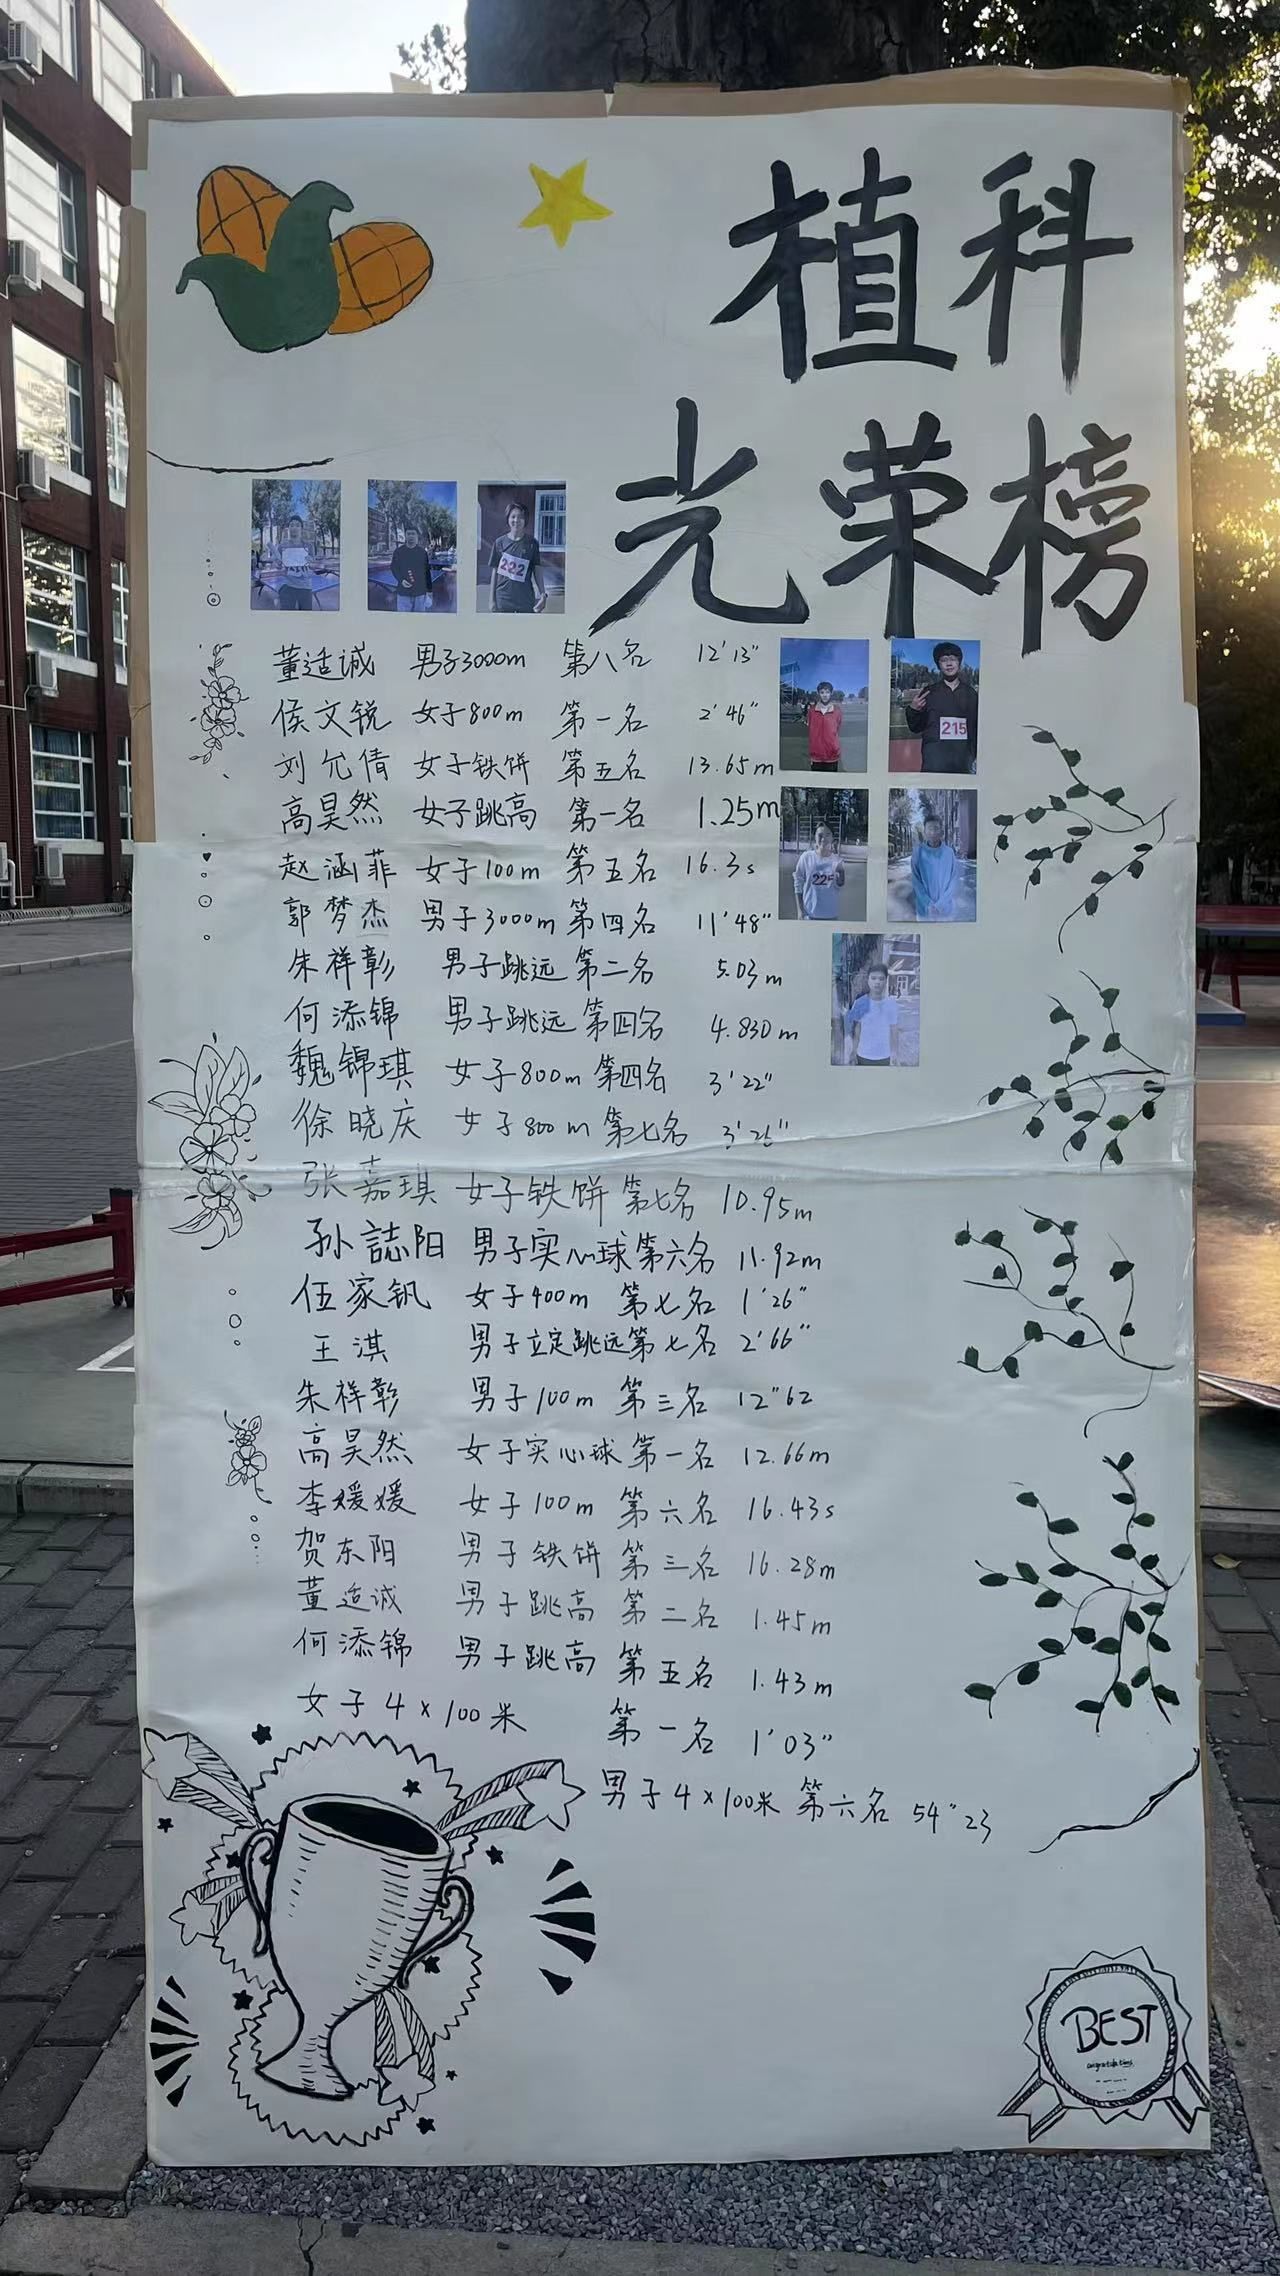 植科
光荣榜
222
董适诚 男子3000m 第八名 12'13"
215
侯文锐 女子800m 第一名 2'46"
刘允倩 女子铁饼 第五名 13.65m
高昊然 女子跳高 第一名 1.25m
赵涵菲 女子100m 第五名 16.3s
225
郭梦杰 男子3000m 第四名 11'48"
朱祥彰 男子跳远 第二名 5.03m
何添锦 男子跳远 第四名 4.830m
魏锦琪 女子800m 第四名 3'22"
徐晓庆 女子800m 第七名
张嘉琪 女子铁饼 第七名 10.95m
孙誌阳 男子实心球 第六名 11.92m
伍家钒 女子400m 第七名 1'26"
王淇 男子立定跳远 第七名 2'66"
朱祥彰 男子100m 第三名 12"62
高昊然 女子实心球 第一名 12.66m
李媛媛 女子100m 第六名 16.43s
贺东阳 男子铁饼 第三名 16.28m
董适诚 男子跳高 第二名 1.45m
何添锦 男子跳高 第五名 1.43m
女子4×100米 第一名 1'03"
男子4×100米 第六名 54"23
BEST
congratulations